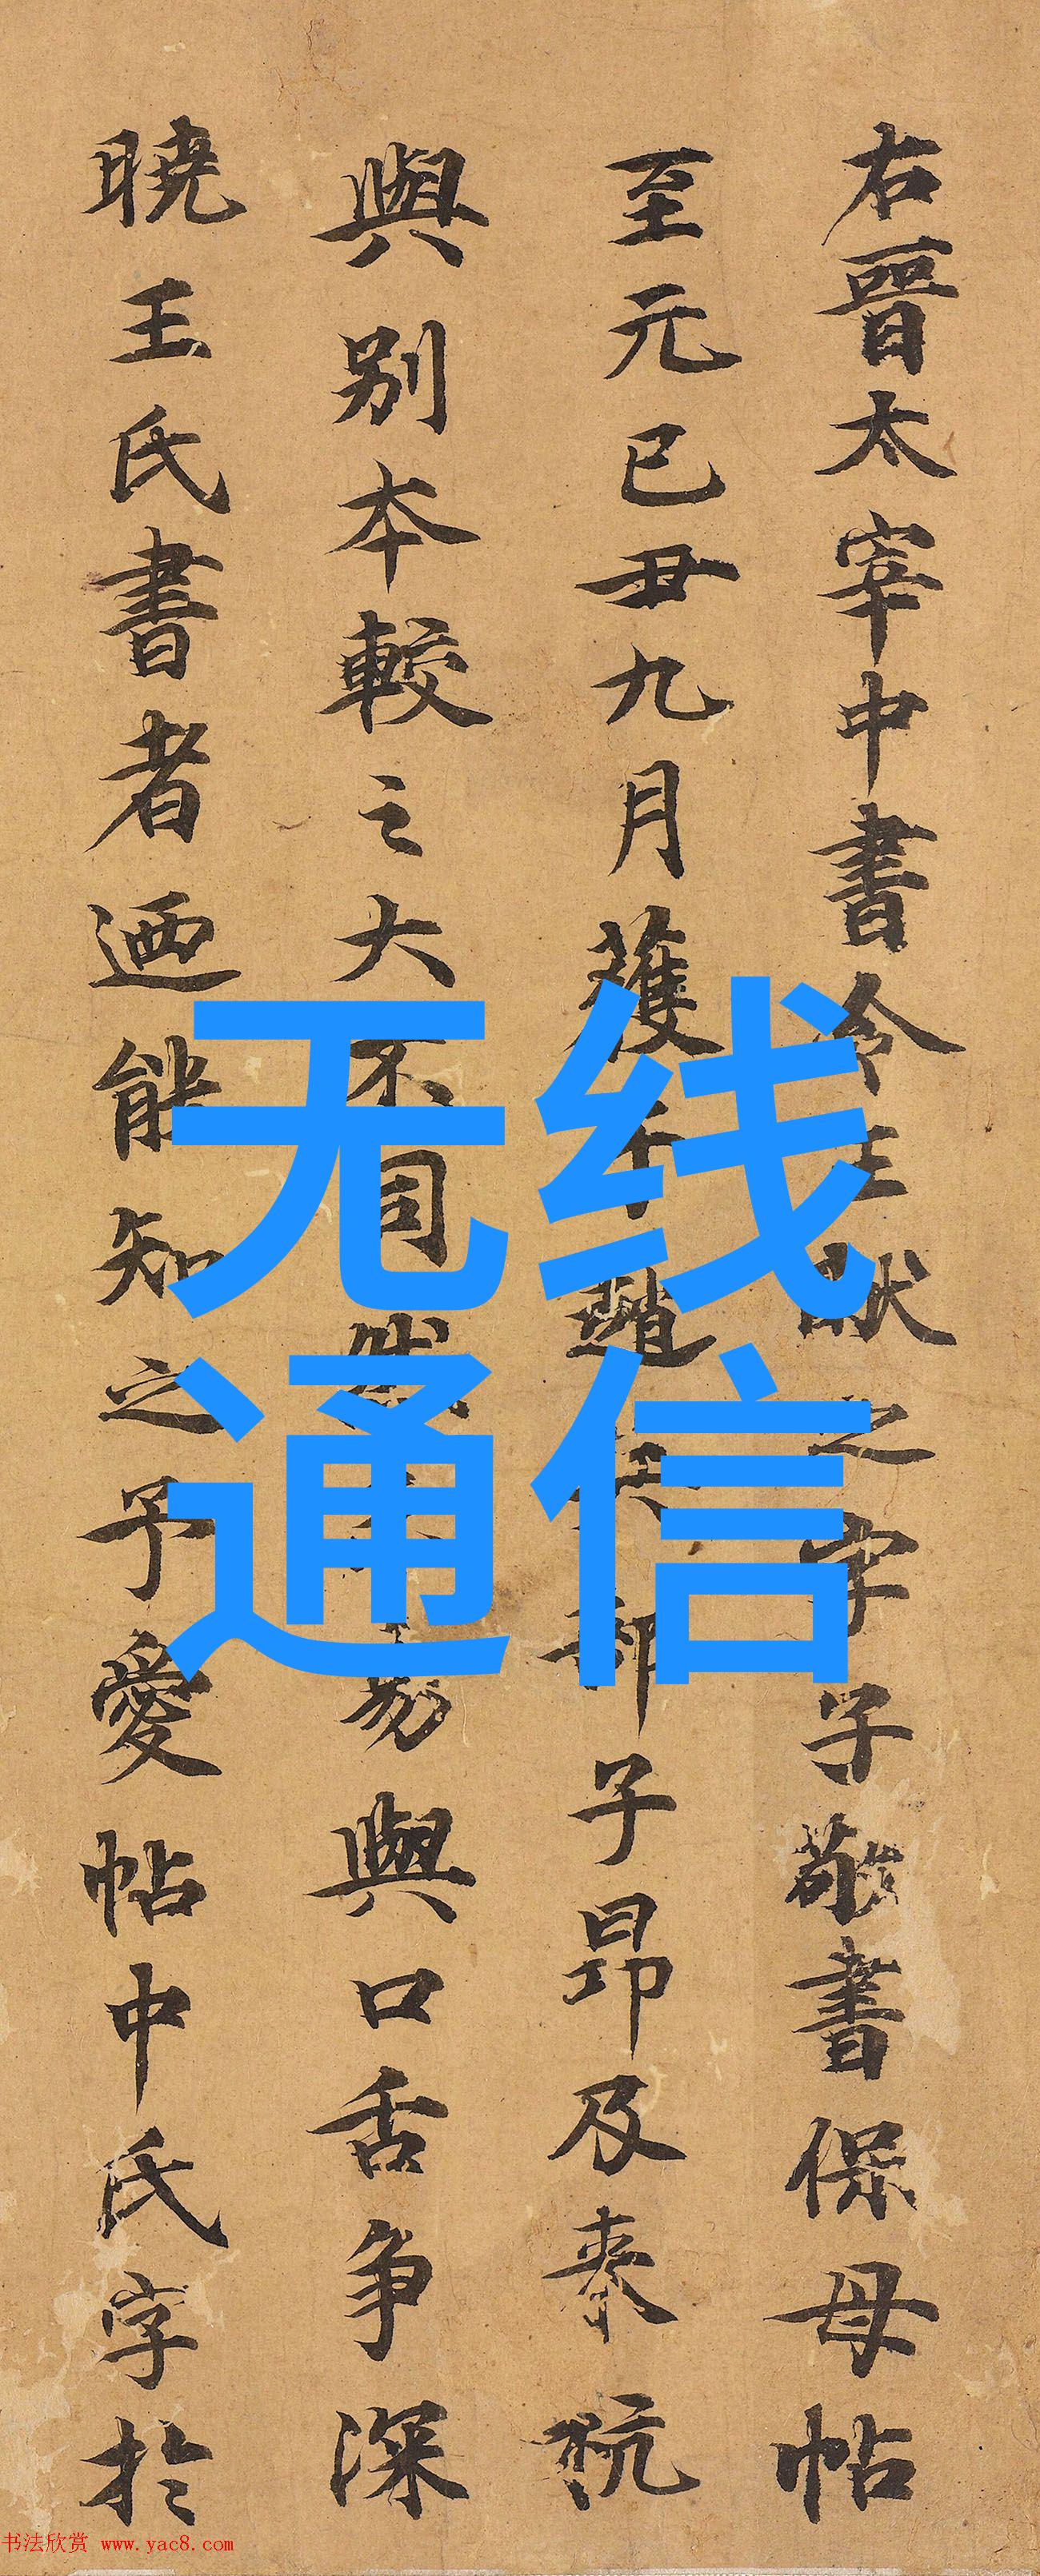 右晉太宰中書令王獻之字子敬書保母帖
至元己丑九月獲于趙兵部子昂及來杭
與别本較之大不同然未易與口舌争深
曉王氏書者迺能知之予愛帖中氏字於
无线
通信
书法欣赏 www.yac8.com